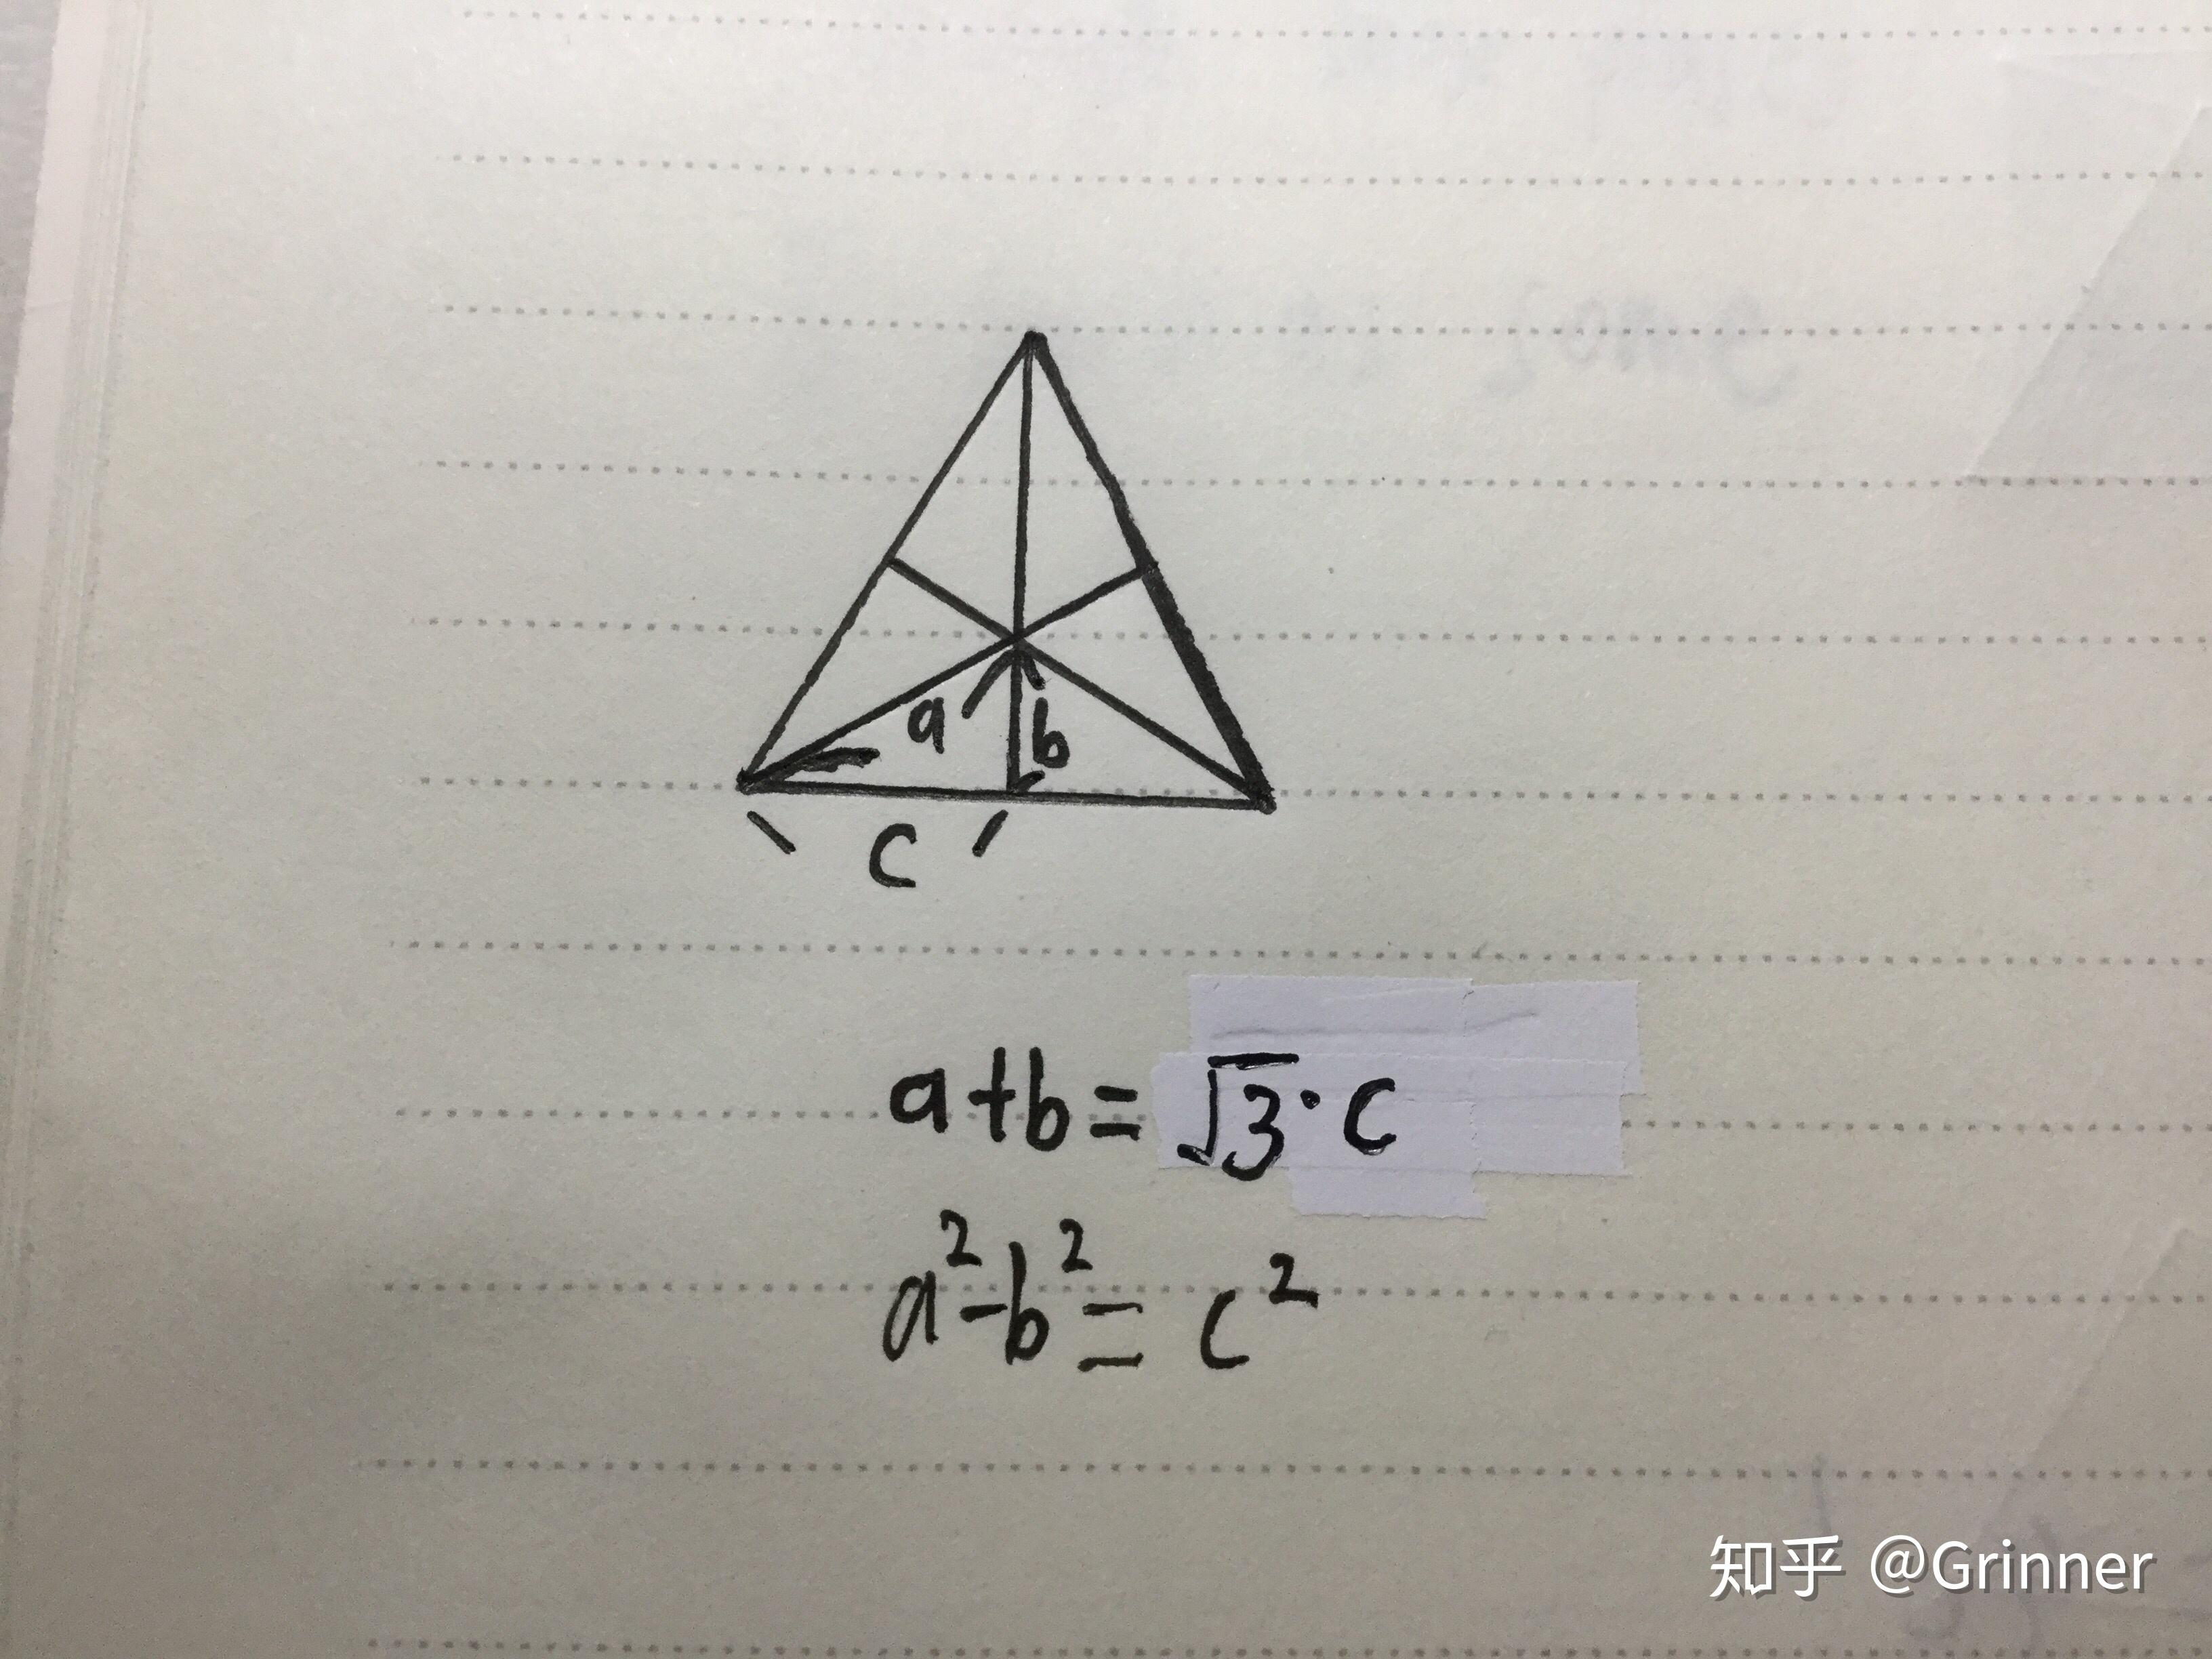 a b
c
a+b=√3·c
a²-b²=c²
知乎 @Grinner